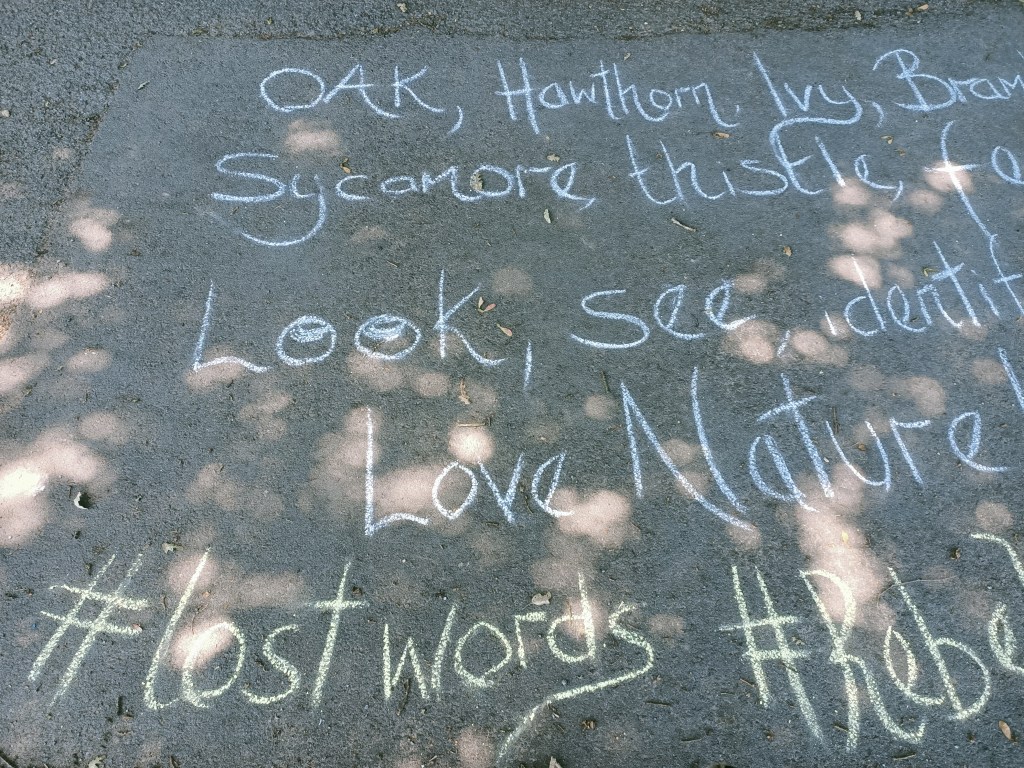 OAK, Hawthorn, Ivy, Bram
Sycamore, thistle, fe
Look, see, identif
Love Nature
#lost words #Rebe